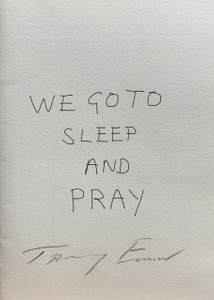 WE GO TO
SLEEP
AND
PRAY
Tracey Emin